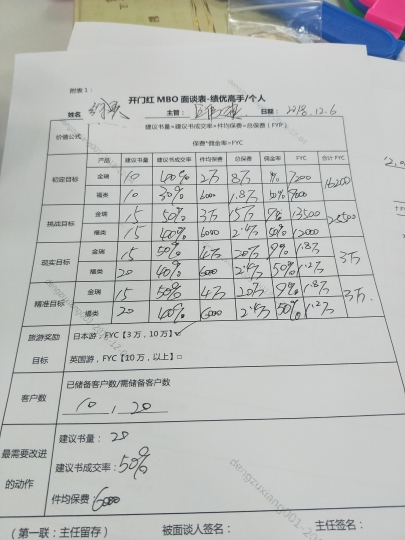 附表1：
开门红 MBO 面谈表-绩优高手/个人
姓名 主管： 日期： 2018.12.6
价值公式 建议书量×建议书成交率×件均保费=总保费（FYP）
保费*佣金率=FYC
产品 建议书量 建议书成交率 件均保费 总保费 佣金率 FYC 合计 FYC
初定目标 金瑞 10 40% 2万 8万 9% 7200 16200
福类 10 30% 6000 1.8万 50% 9000
挑战目标 金瑞 15 50% 3万 15万 9% 13500 25500
福类 15 40% 6000 2.4万 50% 12000
现实目标 金瑞 15 50% 4万 20万 9% 1.8万 3万
福类 20 40% 6000 2.4万 50% 1.2万
精准目标 金瑞 15 50% 4万 20万 9% 1.8万 3万.
福类 20 40% 6000 2.4万 50% 1.2万
旅游奖励目标 日本游，FYC【3万，10万】✓
英国游，FYC【10万，以上】□
客户数 已储备客户数/需储备客户数
10 , 20
最需要改进的动作 建议书量： 20
建议书成交率：50%
件均保费：6000
（第一联：主任留存） 被面谈人签名： 主任签名：